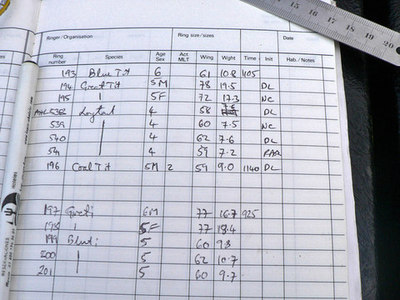 Ringer / Organisation Ring size/sizes Date
Ring number Species Age Sex Act. MLT Wing Wght Time Init Hab. / Notes
193 Blue Tit 6 61 10.8 1105
194 Great Tit 5M 78 19.5 DL
195 " 5F 72 17.3 NC
538 Longtail 4 58 DL
539 | 4 60 7.5 NC
540 | 4 62 7.6 DL
541 | 4 59 7.2 RAR
196 Coal Tit 5M 2 59 9.0 1140 DL
197 Greti 6M 77 16.7 925
198 5F 77 18.4
199 Bluti 5 60 9.8
200 | 5 62 10.7
201 | 5 60 9.7
15 16 17 18 19 20